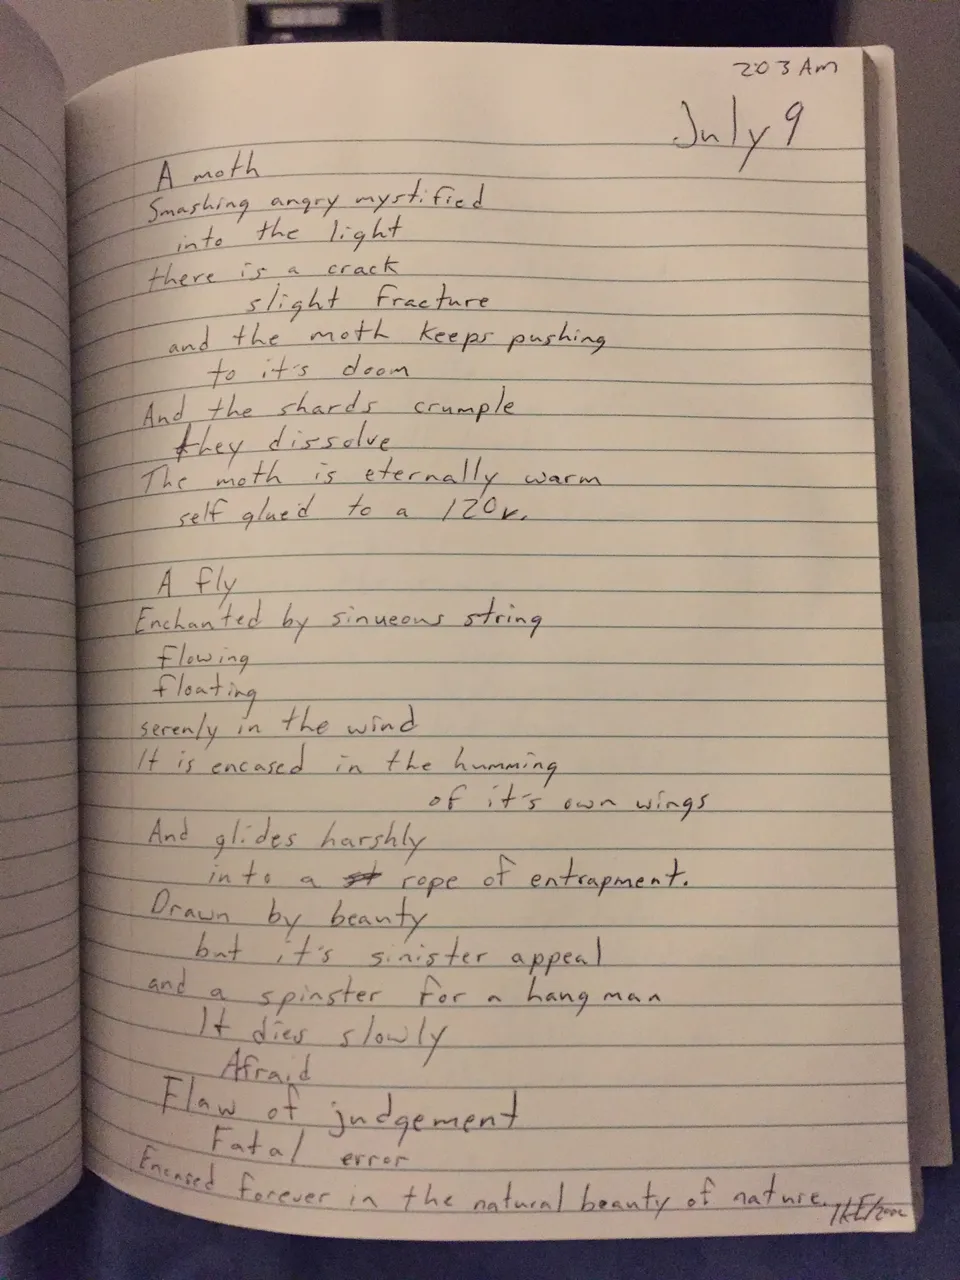 203 Am
July 9
A moth
Smashing angry mystified
into the light
there is a crack
slight fracture
and the moth keeps pushing
to it's doom
And the shards crumple
they dissolve
The moth is eternally warm
self glue'd to a 120v.
A fly
Enchanted by sinueous string
flowing
floating
serenly in the wind
It is encased in the humming
of it's own wings
And glides harshly
into a rope of entrapment.
Drawn by beauty
but it's sinister appeal
and a spinster for a hang man
It dies slowly
Afraid
Flaw of judgement
Fatal error
Encased forever in the natural beauty of nature.